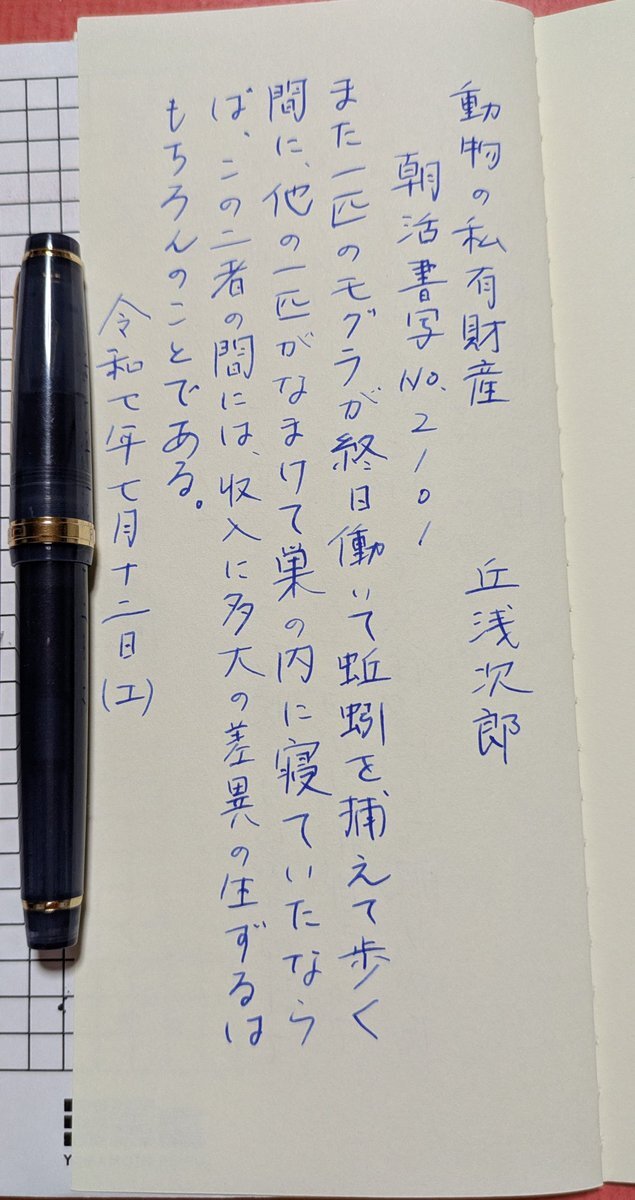 動物の私有財産　丘浅次郎
朝活書写No.2101
また一匹のモグラが終日働いて蚯蚓を捕えて歩く
間に、他の一匹がなまけて巣の内に寝ていたなら
ば、この二者の間には、収入に多大の差異の生ずるは
もちろんのことである。
令和七年七月十二日(土)